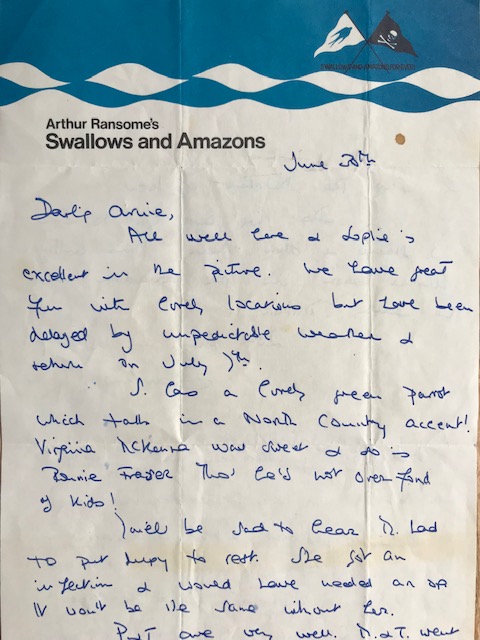 SWALLOWS AND AMAZONS FOR EVER!
Arthur Ransome's
Swallows and Amazons
June 30th
Darling
All well here & Sophie is
excellent in the picture. We have great
fun with lovely locations but have been
delayed by unpredictable weather &
return on July 7th.
S. has a lovely green parrot
which talks in a North Country accent!
Virginia McKenna was sweet & so is
Ronnie Fraser tho' he's not over fond
of kids!
You'll be sad to hear M. had
to put to rest. She got an
infection & would have needed an op
It won't be the same without her.
P and T are very well. M. & J. went